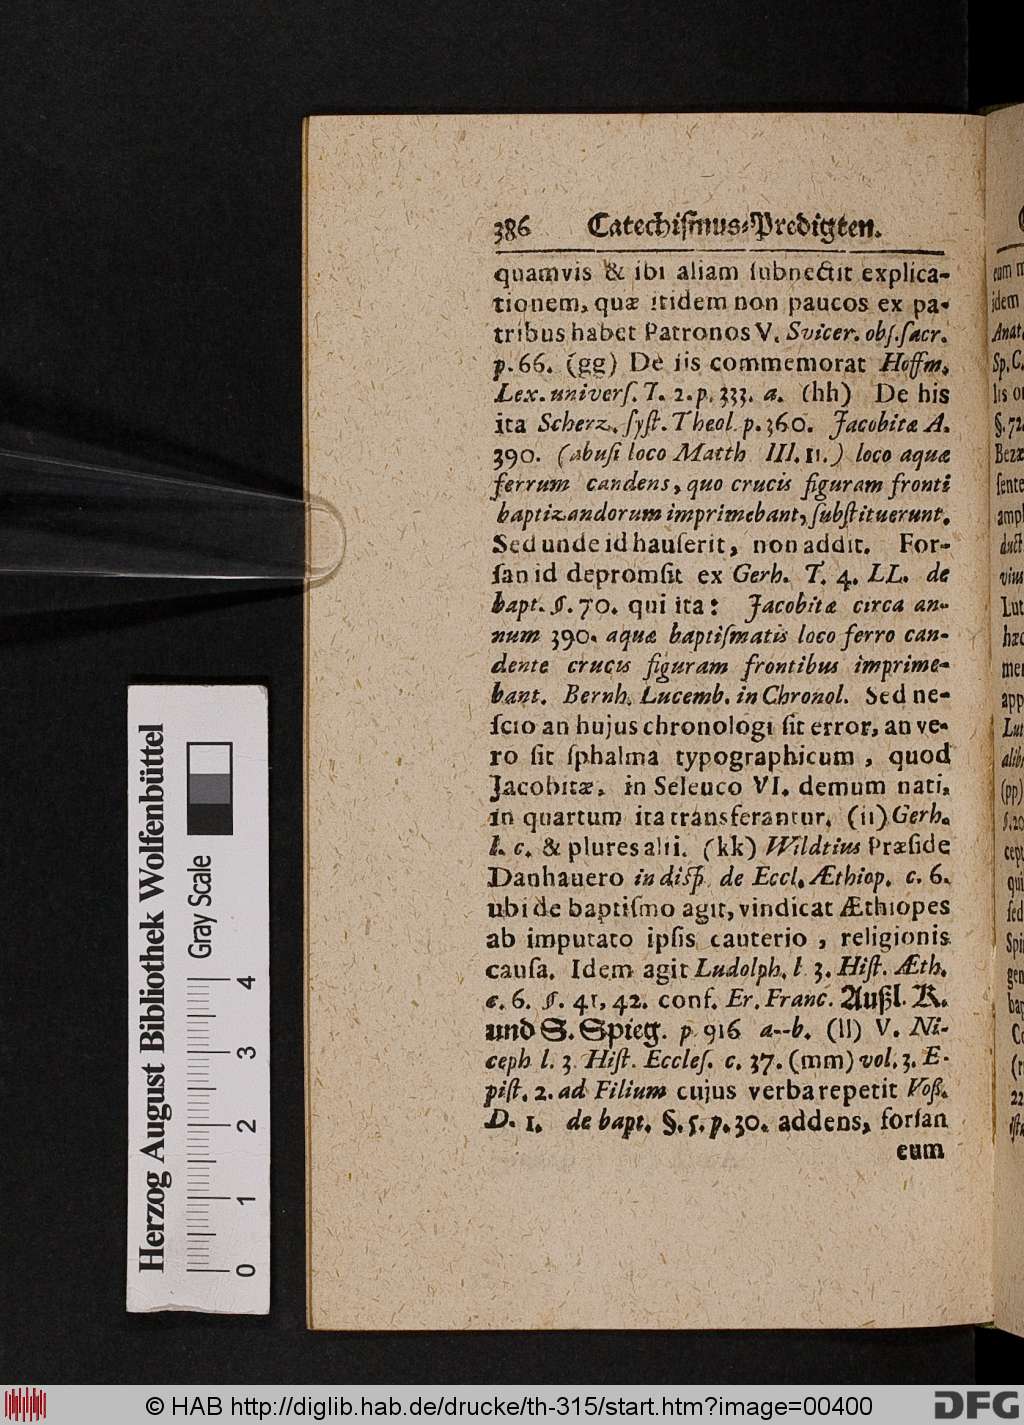 386 Catechiſmus-Predigten.
quamvis & ibi aliam ſubnectit explica-
tionem, quæ itidem non paucos ex pa-
tribus habet Patronos V. Svicer. obſ. ſacr.
p. 66. (gg) De iis commemorat Hoffm.
Lex. univerſ. T. 2. p. 333. a. (hh) De his
ita Scherz. ſyſt. Theol. p. 360. Jacobitæ A.
390. (abuſi loco Matth III. 11.) loco aquæ
ferrum candens, quo crucis figuram fronti
baptizandorum imprimebant, ſubſtituerunt.
Sed unde id hauſerit, non addit. For-
ſan id depromſit ex Gerh. T. 4. LL. de
bapt. §. 70. qui ita: Jacobitæ circa an-
num 390. aquæ baptiſmatis loco ferro can-
dente crucis figuram frontibus imprime-
bant. Bernh. Lucemb. in Chronol. Sed ne-
ſcio an hujus chronologi ſit error, an ve-
ro ſit ſphalma typographicum, quod
Jacobitæ, in Seleuco VI. demum nati,
in quartum ita transferantur. (ii) Gerh.
l. c. & plures alii. (kk) Wildtius Præſide
Danhauero in diſp. de Eccl. Æthiop. c. 6.
ubi de baptiſmo agit, vindicat Æthiopes
ab imputato ipſis cauterio, religionis
cauſa. Idem agit Ludolph. l. 3. Hiſt. Æth.
c. 6. §. 41, 42. conf. Er. Franc. Außl. K.
und S. Spieg. p 916 a--b. (ll) V. Ni-
ceph l. 3. Hiſt. Eccleſ. c. 37. (mm) vol. 3. E-
piſt. 2. ad Filium cujus verba repetit Voß.
D. 1. de bapt. §. 5. p. 30. addens, forſan
eum
Herzog August Bibliothek Wolfenbüttel
Gray Scale
0 1 2 3 4
© HAB http://diglib.hab.de/drucke/th-315/start.htm?image=00400
DFG